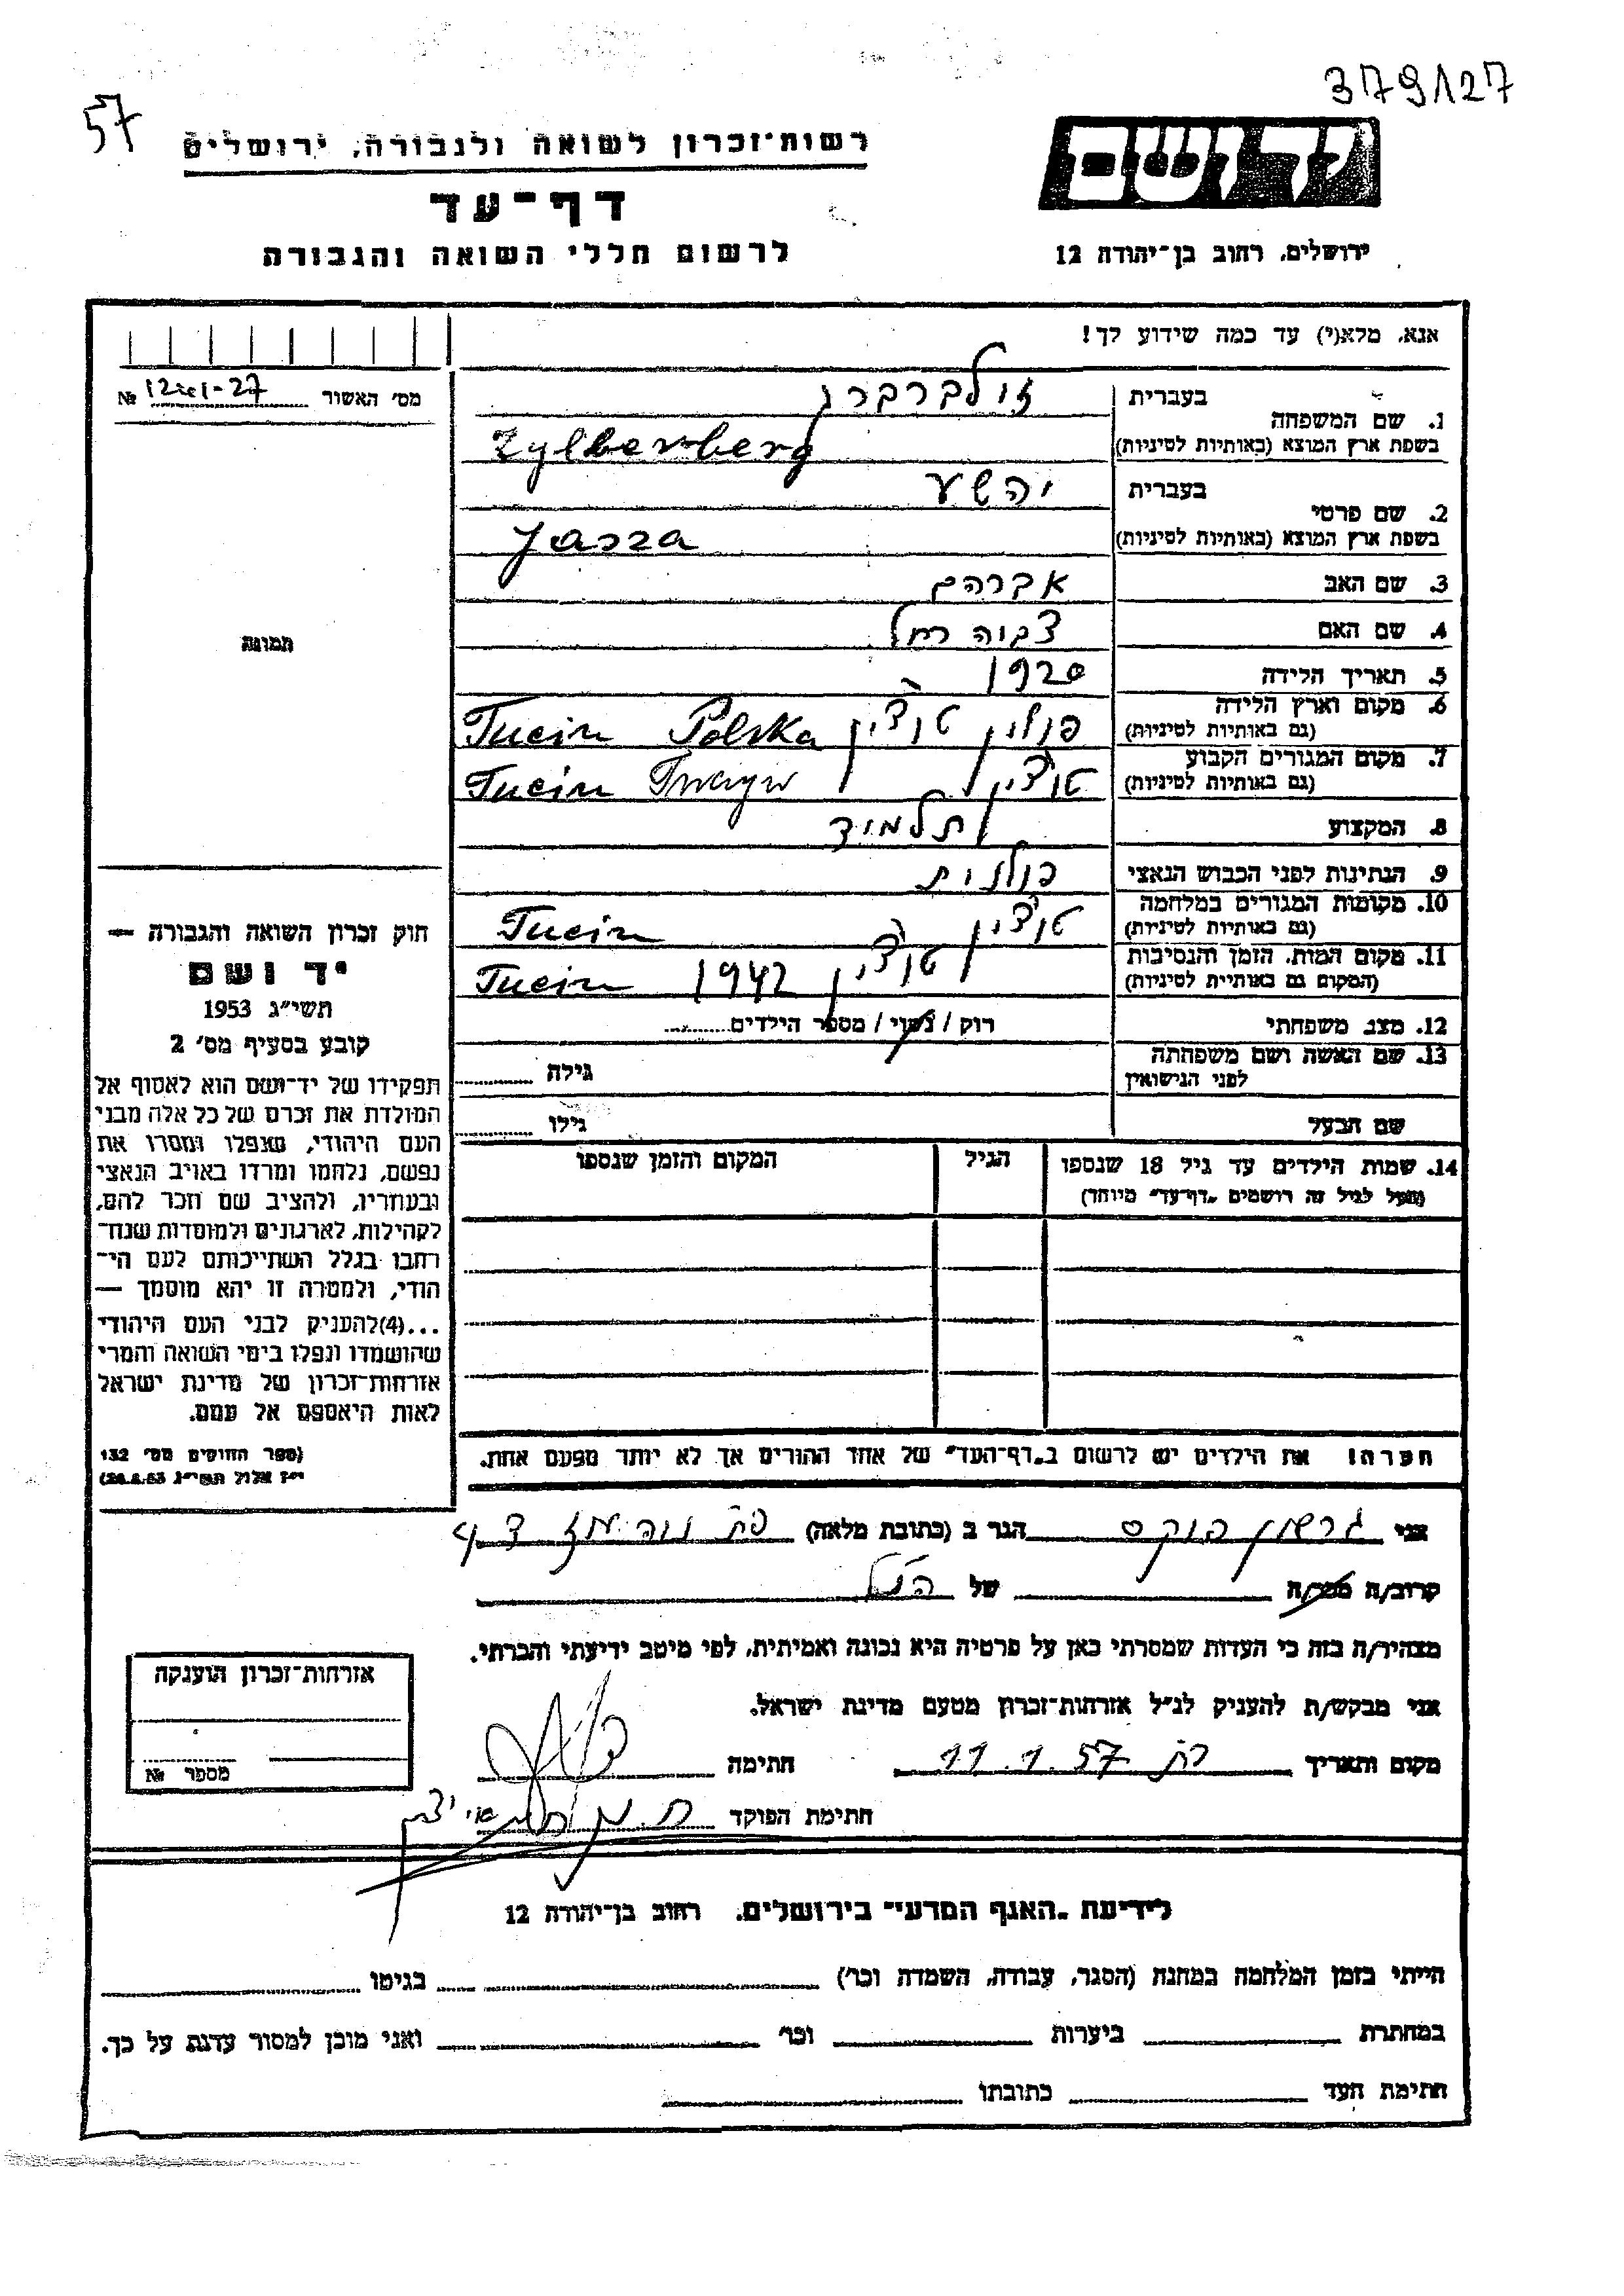 379/127
57
יד ושם
רשות-זכרון לשואה ולגבורה, ירושלים
דף-עד
לרשום חללי השואה והגבורה
ירושלים, רחוב בן-יהודה 12
אנא, מלא(י) עד כמה שידוע לך!
מס' האשור № 1241-27
בעברית זילברברג
1. שם המשפחה
בשפת ארץ המוצא (באותיות לטיניות) Zylberberg
בעברית יהשע
2. שם פרטי
בשפת ארץ המוצא (באותיות לטיניות) Jasza
3. שם האב אברהם
4. שם האם רחל
5. תאריך הלידה 1920
6. מקום וארץ הלידה
(גם באותיות לטיניות) פולין טוצין Polska Tucin
7. מקום המגורים הקבוע
(גם באותיות לטיניות) טוצין Tucin
8. המקצוע תלמיד
9. הנתינות לפני הכבוש הנאצי פולנית
10. מקומות המגורים במלחמה
(גם באותיות לטיניות) טוצין Tucin
11. מקום המות, הזמן והנסיבות
(המקום גם באותיית לטיניות) טוצין 1942 Tucin
12. מצב משפחתי רוק / נשוי / מספר הילדים
13. שם האשה ושם משפחתה
לפני הנישואין גילה
שם הבעל גילו
14. שמות הילדים עד גיל 18 שנספו הגיל המקום והזמן שנספו
(מעל לגיל זה רושמים "דף-עד" מיוחד)
הערה! את הילדים יש לרשום ב"דף-העד" של אחד ההורים אך לא יותר מפעם אחת.
תמונה
חוק זכרון השואה והגבורה —
יד ושם
תשי"ג 1953
קובע בסעיף מס' 2
תפקידו של יד-ושם הוא לאסוף אל
המולדת את זכרם של כל אלה מבני
העם היהודי, שנפלו ומסרו את
נפשם, נלחמו ומרדו באויב הנאצי
ובעוזריו, ולהציב שם וזכר להם,
לקהילות, לארגונים ולמוסדות שנח-
רבו בגלל השתייכותם לעם הי-
הודי, ולמטרה זו יהא מוסמך —
...(4)להעניק לבני העם היהודי
שהושמדו ונפלו בימי השואה והמרי
אזרחות-זכרון של מדינת ישראל
לאות היאספם אל עמם.
(ספר החוקים מס' 132
י"ז אלול תשי"ג 28.8.53)
אני גרשון פוקס הגר ב (כתובת מלאה)
קרוב/ה מכר/ה של הנ"ל
מצהיר/ה בזה כי העדות שמסרתי כאן על פרטיה היא נכונה ואמיתית, לפי מיטב ידיעתי והכרתי.
אני מבקש/ת להעניק לנ"ל אזרחות-זכרון מטעם מדינת ישראל.
מקום ותאריך 11.1.57 חתימה
חתימת הפוקד
אזרחות-זכרון הוענקה
מספר №
לידיעת "האגף המדעי" בירושלים. רחוב בן-יהודה 12
הייתי בזמן המלחמה במחנה (הסגר, עבודה, השמדה וכו') בגיטו
במחתרת ביערות וכו' ואני מוכן למסור עדות על כך.
חתימת העד כתובתו